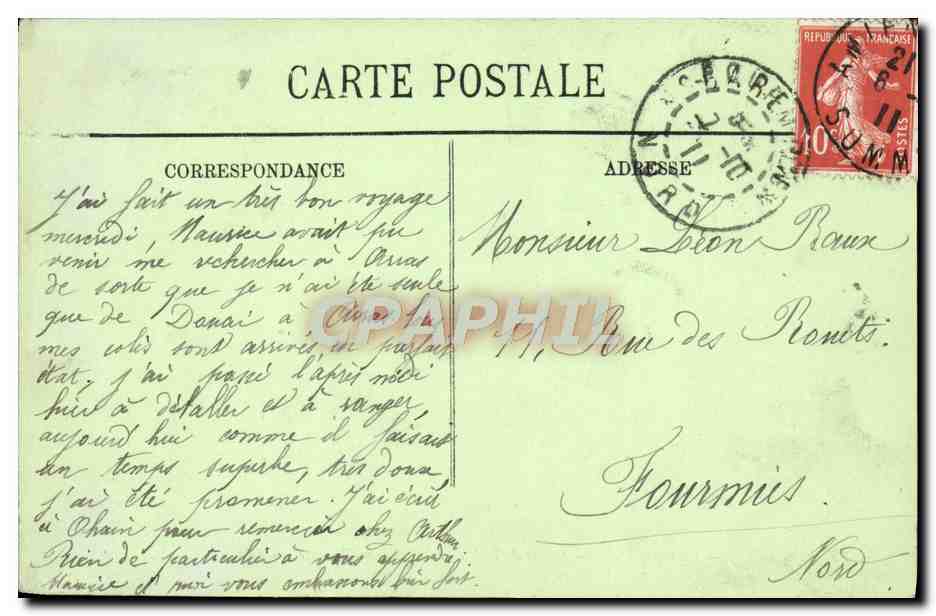 CARTE POSTALE
REPUBLIQUE FRANÇAISE
10c
POSTES
21
6
11
SOMM
CORRESPONDANCE
J'ai fait un très bon voyage
mercredi, Maurice avait pu
venir me rechercher à Arras
de sorte que je n'ai été seule
que de Douai à Arras
mes colis sont arrivés en parfait
état, j'ai passé l'après midi
hier à déballer et à ranger,
aujourd'hui comme il faisait
un temps superbe, très doux,
j'ai été promener. J'ai écrit
à Ohain pour remercier chez Arthur
Rien de particulier à vous apprendre,
Maurice et moi vous embrassons bien fort.
ADRESSE
Monsieur Léon Baux
11, Rue des Rouets.
Fourmies.
Nord
CPAPHIL